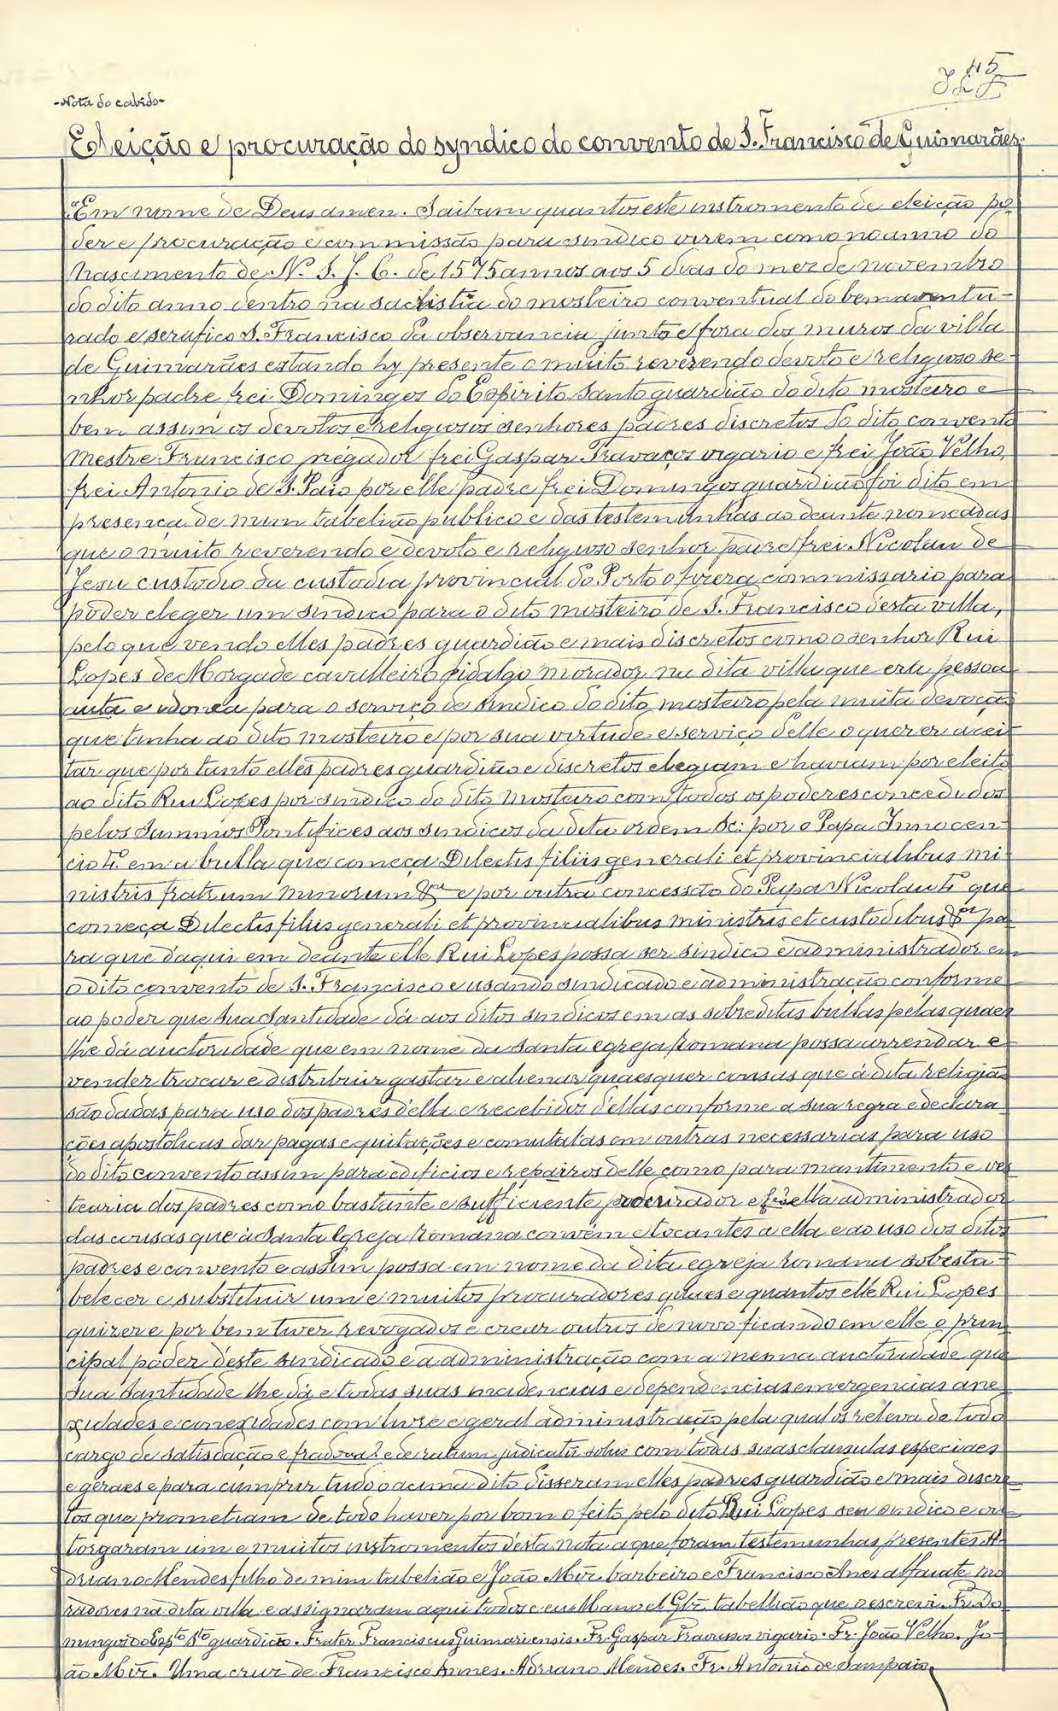 45
-Nota do cabido-
Eleição e procuração do syndico do convento de S. Francisco de Guimarães.
"Em nome de Deus amen. Saibam quantos este instromento de eleição po-
der e procuração e commissão para sindico virem como no anno do
Nascimento de N. S. J. C. de 1575 annos aos 5 dias do mez de novembro
do dito anno dentro na sachistia do mosteiro conventual do bemaventu-
rado e serafico S. Francisco da observancia junto e fora dos muros da villa
de Guimarães estando hy presente o muito reverendo devoto e religioso se-
nhor padre frei Domingos do Espirito Santo guardião do dito mosteiro e
bem assim os devotos e religiosos senhores padres discretos do dito convento
Mestre Francisco pregador frei Gaspar Travaços vigario e frei João Velho,
frei Antonio de S. Paio por elle padre frei Domingos guardião foi dito em
presença de mim tabelião publico e das testemunhas ao deante nomeadas
que o muito reverendo e devoto e religioso senhor padre frei Nicolau de
Jesu custodio da custodia provincial do Porto o fizera commissario para
poder eleger um sindico para o dito mosteiro de S. Francisco desta villa,
pelo que vendo elles padres guardião e mais discretos como o senhor Rui
Lopes de Morgade cavalleiro fidalgo morador na dita villa que era pessoa
auta e idonea para o serviço de sindico do dito mosteiro pela muita devoção
que tinha ao dito mosteiro e por sua virtude e serviço delle o querer acei-
tar que portanto elles padres guardião e discretos elegiam e haviam por eleito
ao dito Rui Lopes por sindico do dito mosteiro com todos os poderes concedidos
pelos Summos Pontifices aos sindicos da dita ordem Sc: por o Papa Innocen-
cio 4º em a bulla que começa Dilectis filiis generali et provincialibus mi-
nistris fratrum minorum &ª e por outra concessão do Papa Nicolau 4º que
começa Dilectis filiis generali et provincialibus ministris et custodibus &ª pa-
ra que d'aqui em deante elle Rui Lopes possa ser sindico e administrador em
o dito convento de S. Francisco e usando sindicado e administração conforme
ao poder que Sua Santidade dá aos ditos sindicos em as sobreditas bullas pelas quaes
lhe dá auctoridade que em nome da Santa egreja Romana possa arrendar e
vender trocar e distribuir gastar e alienar quaesquer cousas que á dita religião
são dadas para uso dos padres d'ella e recebidos d'ellas conforme a sua regra e declara-
ções apostolicas dar pagas e quitações e comutalas em outras necessarias para uso
do dito convento assim para edificios e repairos delle como para mantimento e ves-
tearia dos padres como bastante e sufficiente procurador e della administrador
das cousas que á Santa Egreja Romana convem e tocantes a ella e ao uso dos ditos
padres e convento e assim possa em nome da dita egreja romana sobesta-
belecer e substituir um e muitos procuradores quaes e quantos elle Rui Lopes
quizer e por bem tiver revogados e crear outros de novo ficando em elle o prin-
cipal poder d'este sindicado e a administração com a mesma auctoridade que
Sua Santidade lhe dá e todas suas incidencias e dependencias emergencias ane-
xidades e conexidades com livre e geral administração pela qual os releva de todo
cargo de satisdação e judicatu solvi com todas suas clausulas especiaes
e geraes e para cumprir tudo o acima dito disseram elles padres guardião e mais discre-
tos que prometiam de todo haver por bom o feito pelo dito Rui Lopes seu sindico e ou-
torgaram um e muitos instromentos désta nota a que foram testemunhas presentes A-
driano Mendes filho de mim tabelião e João Miz. barbeiro e Francisco Anes alfaiate mo-
radores na dita villa e assignaram aqui todos e eu Manoel Glz. tabellião que o escrevi. Fr. Do-
mingos do Espto Sto guardião. Frater Franciscus Guimariensis. Fr. Gaspar Travassos vigario. Fr. João Velho. Jo-
ão Miz. Uma cruz de Francisco Annes. Adriano Mendes. Fr. Antonio de Sampaio.